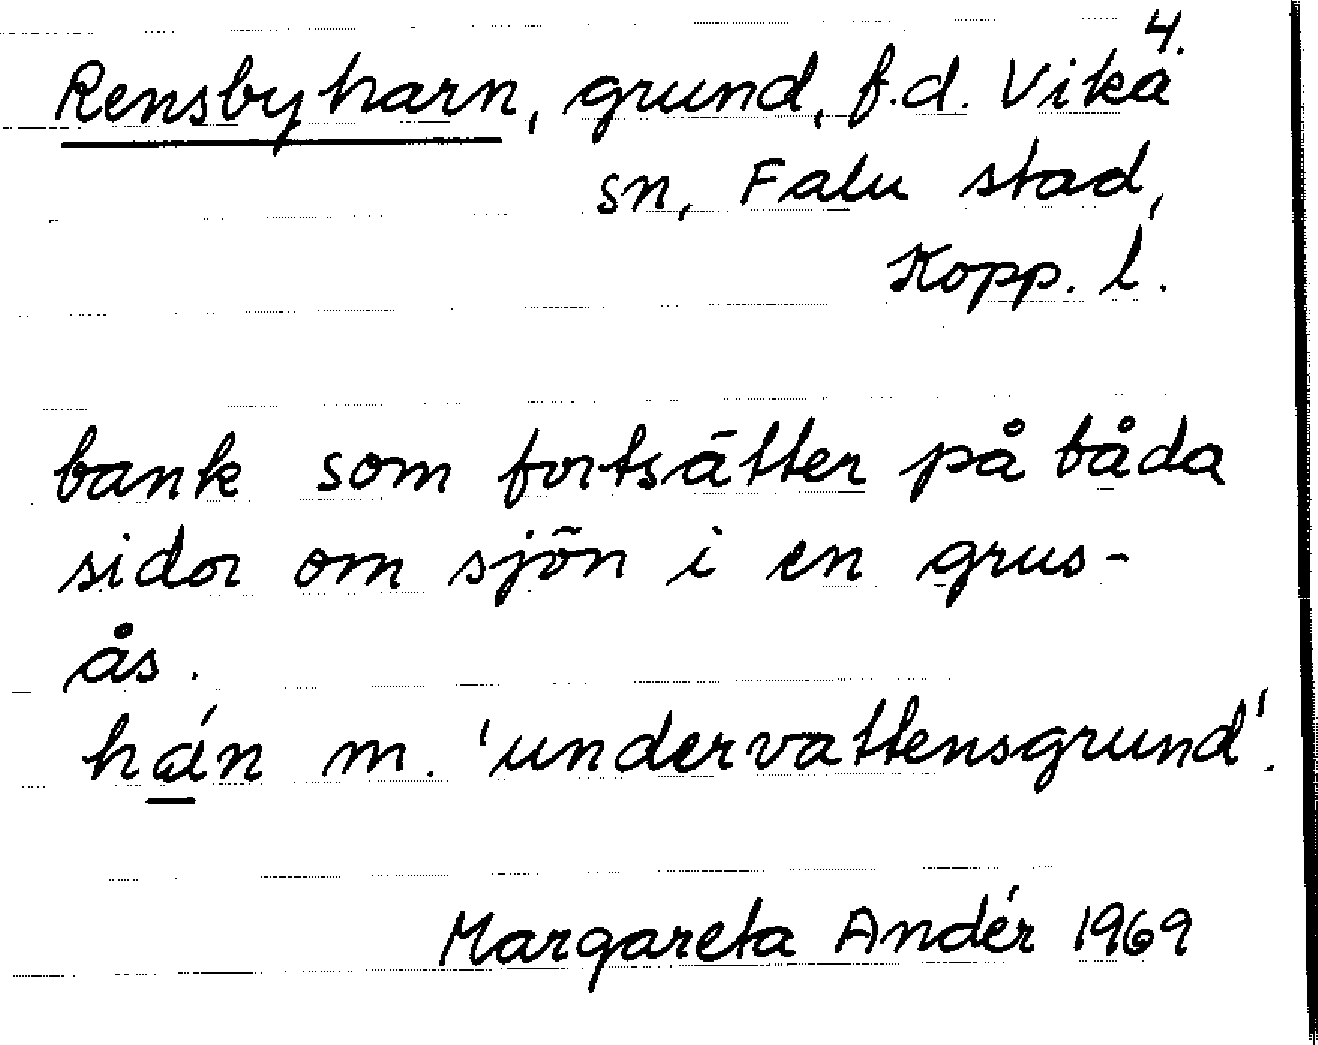 4.
Rensbyharn, grund, f.d. Vika
sn, Falu stad,
Kopp. l.
bank som fortsätter på båda
sidor om sjön i en grus-
ås.
há̱n m. 'undervattensgrund'.
Margareta Andér 1969